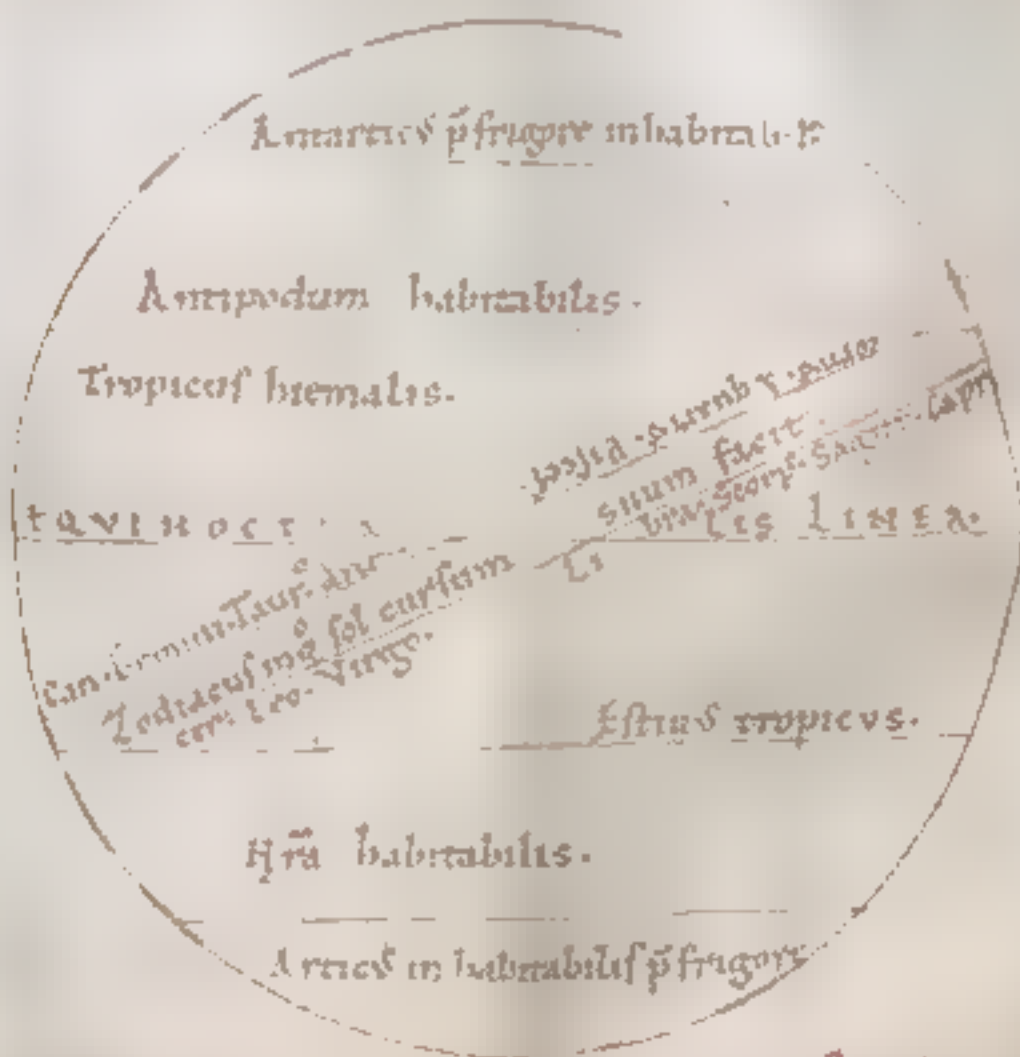 Antarticꝰ p̃ frigore inhabitab
Antipodum habitabilis.
Tropicus hiemalis.
EQVINOCTIALIS LINEA.
suum facit.
Libra. Scorp. Sagit. Capri
Can. Taur.
Zodiacus in qͦ sol cursum
cer. Leo. Virgo.
Estiuꝰ tropicvs.
Nr̃a habitabilis.
Articꝰ inhabitabilis p̃ frigore